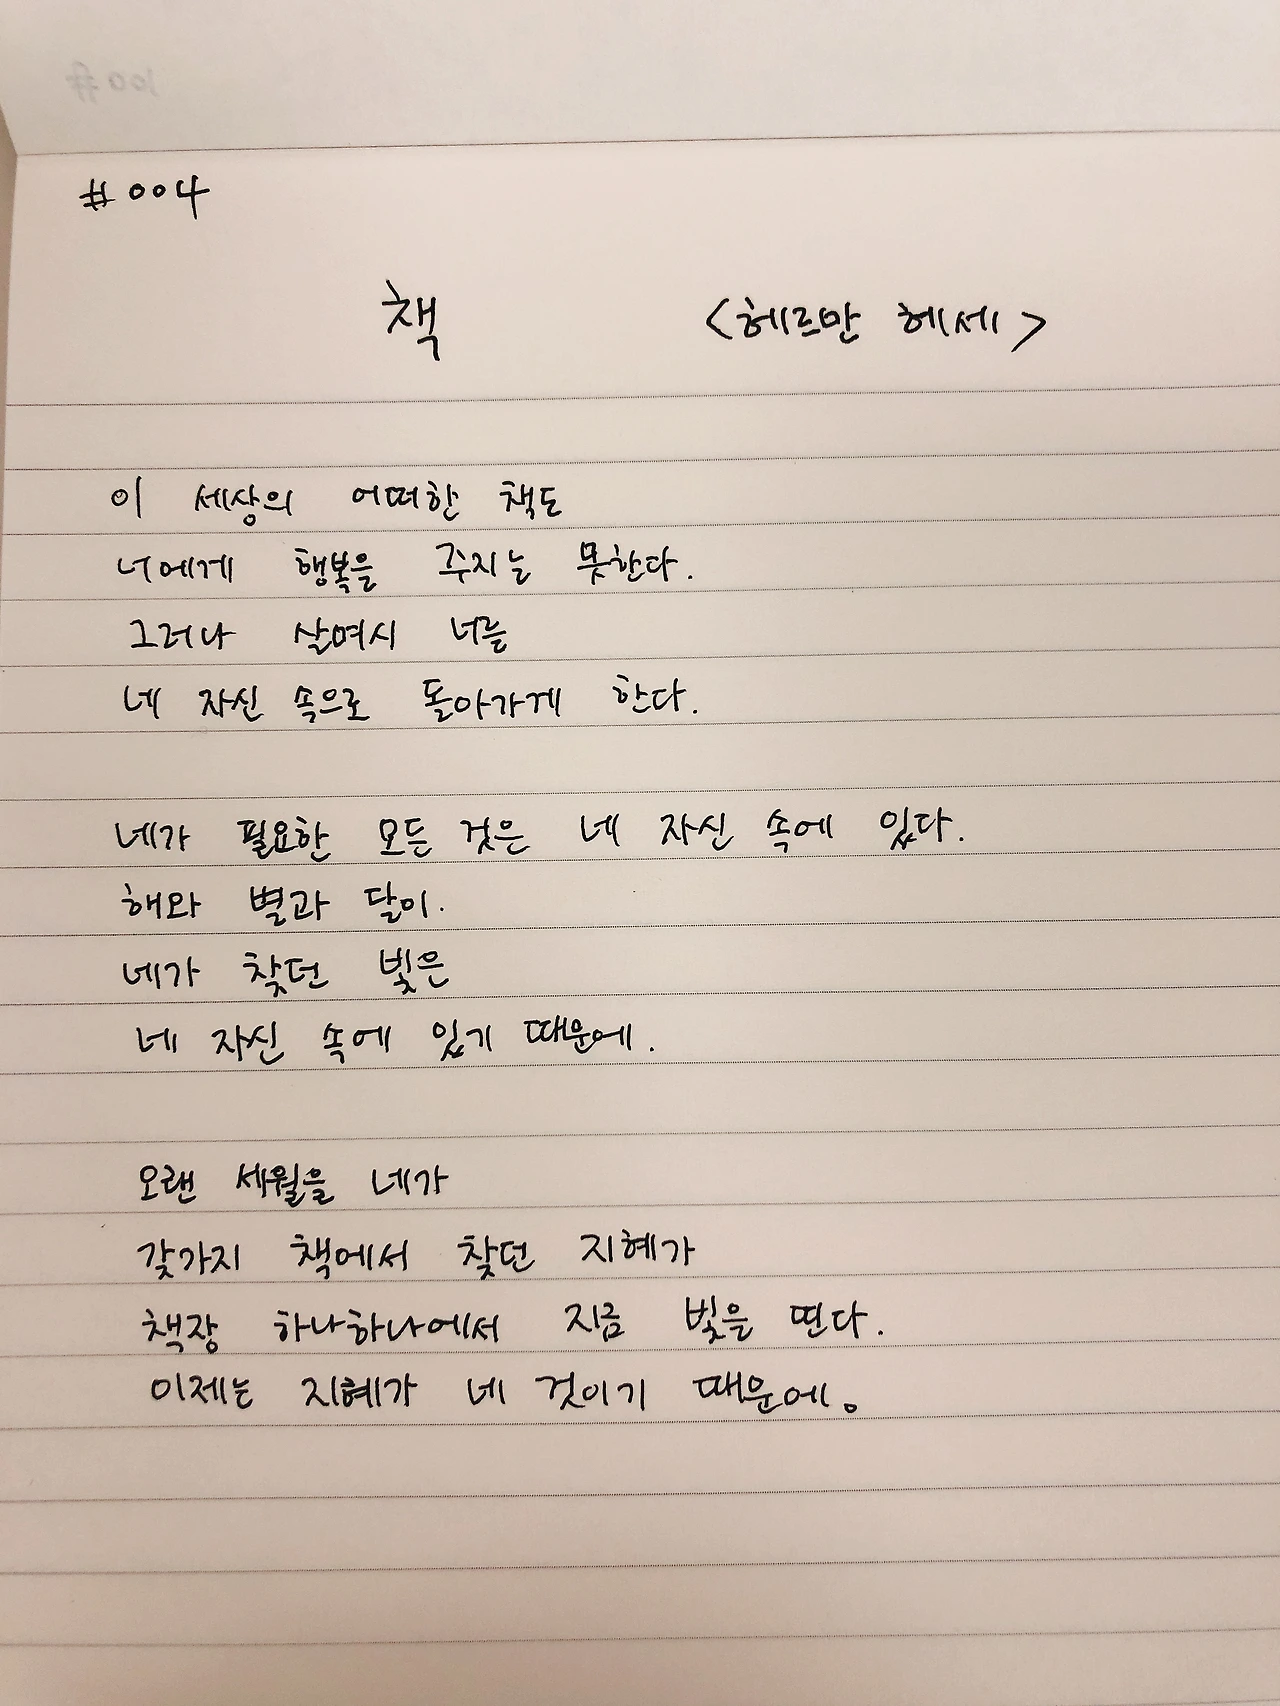 #004
책 <헤르만 헤세>
이 세상의 어떠한 책도
너에게 행복을 주지는 못한다.
그러나 살며시 너를
네 자신 속으로 돌아가게 한다.
네가 필요한 모든 것은 네 자신 속에 있다.
해와 별과 달이.
네가 찾던 빛은
네 자신 속에 있기 때문에.
오랜 세월을 네가
갖가지 책에서 찾던 지혜가
책장 하나하나에서 지금 빛을 띤다.
이제는 지혜가 네 것이기 때문에。